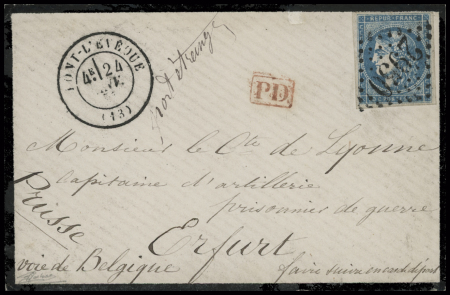 PONT-L'EVEQUE
4E 24
(13)
PD
REPUB. FRANC.
Monsieur le Cte de Lyonne
Capitaine d'artillerie
prisonnier de guerre
Erfurt
Prusse
voie de Belgique
faire suivre en cas de départ